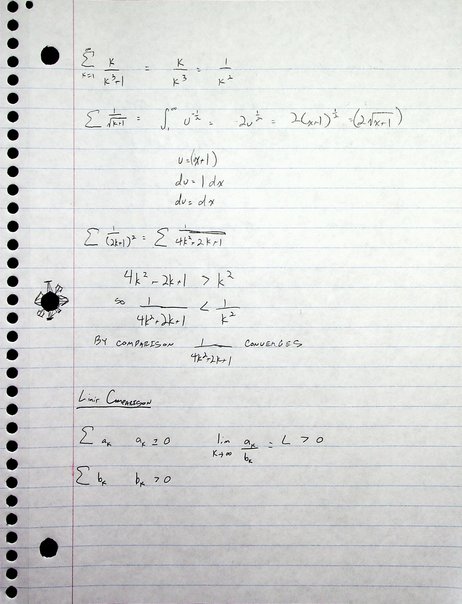 ∞ ∑ k=1 k/(k³+1) = k/k³ = 1/k²
∑ 1/√(k+1) = ∫₁^∞ u^(-1/2) = 2u^(1/2) = 2(x+1)^(1/2) = (2√(x+1))
u=(x+1)
du = 1 dx
du = dx
∑ 1/(2k+1)² = ∑ 1/(4k²+2k+1)
4k² - 2k+1 > k²
so 1/(4k²+2k+1) < 1/k²
BY COMPARISON 1/(4k²+2k+1) CONVERGES
LIMIT COMPARISON
∑ aₖ aₖ ≥ 0 lim k→∞ aₖ/bₖ = L > 0
∑ bₖ bₖ > 0